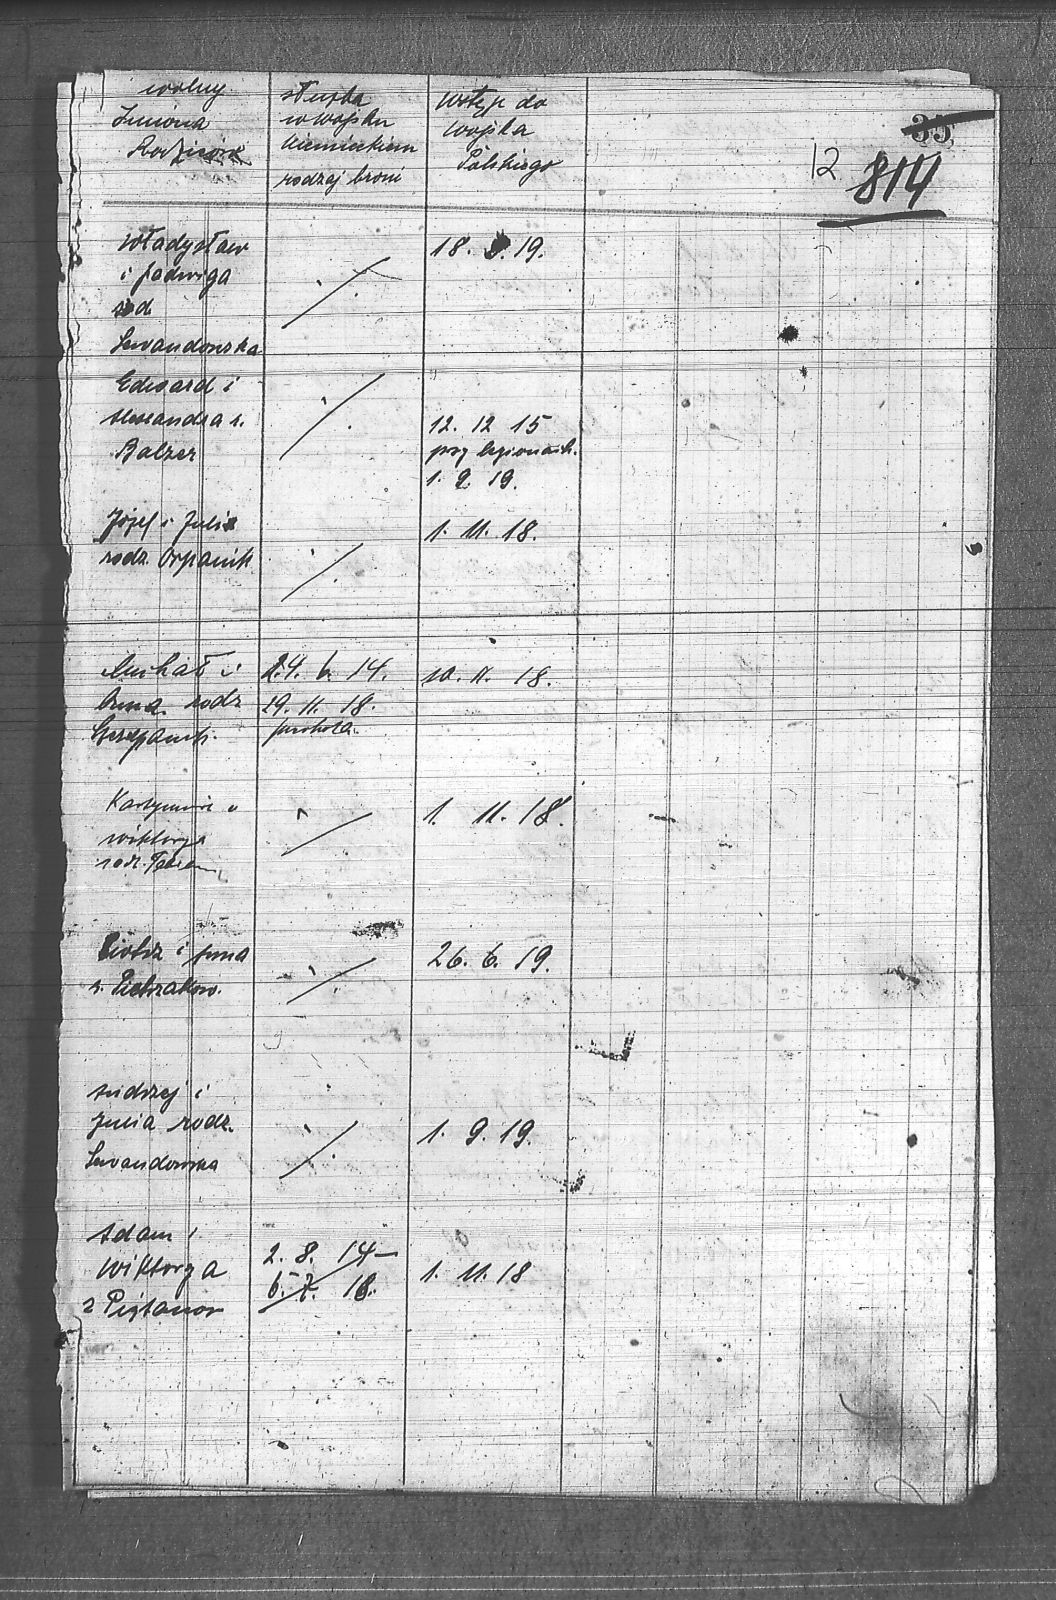 wolny
Imiona
służba
w wojsku
niemieckiem
rodzaj broni
wstąp do
wojska
Polskiego
35
12 814
Władysław
i Jadwiga
Lewandowska
18. 19.
Edward i
Alexandra r.
Balzer
12. 12 15
przy legionach.
1. 9. 19.
Józef i Julia
rodz.
1. 11. 18.
Michał i
Anna rodz
Szczepanik.
24. 6. 14.
29. 11. 18.
piechota.
10. 11. 18.
Kazimierz i
Wiktorya
rodz.
1. 11. 18.
Piotr i Anna
r. Pietrzaków.
26. 6. 19.
Andrzej i
Julia rodz.
Lewandowska
1. 9. 19.
Adam i
Wiktorya
z
2. 8. 14 –
18.
1. 11. 18